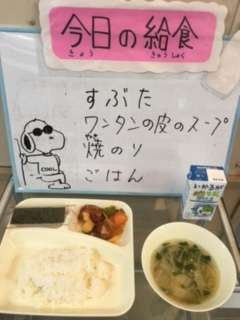 今日の給食
きょう きゅうしょく
すぶた
ワンタンの皮のスープ
焼のり
やき
ごはん
COOL